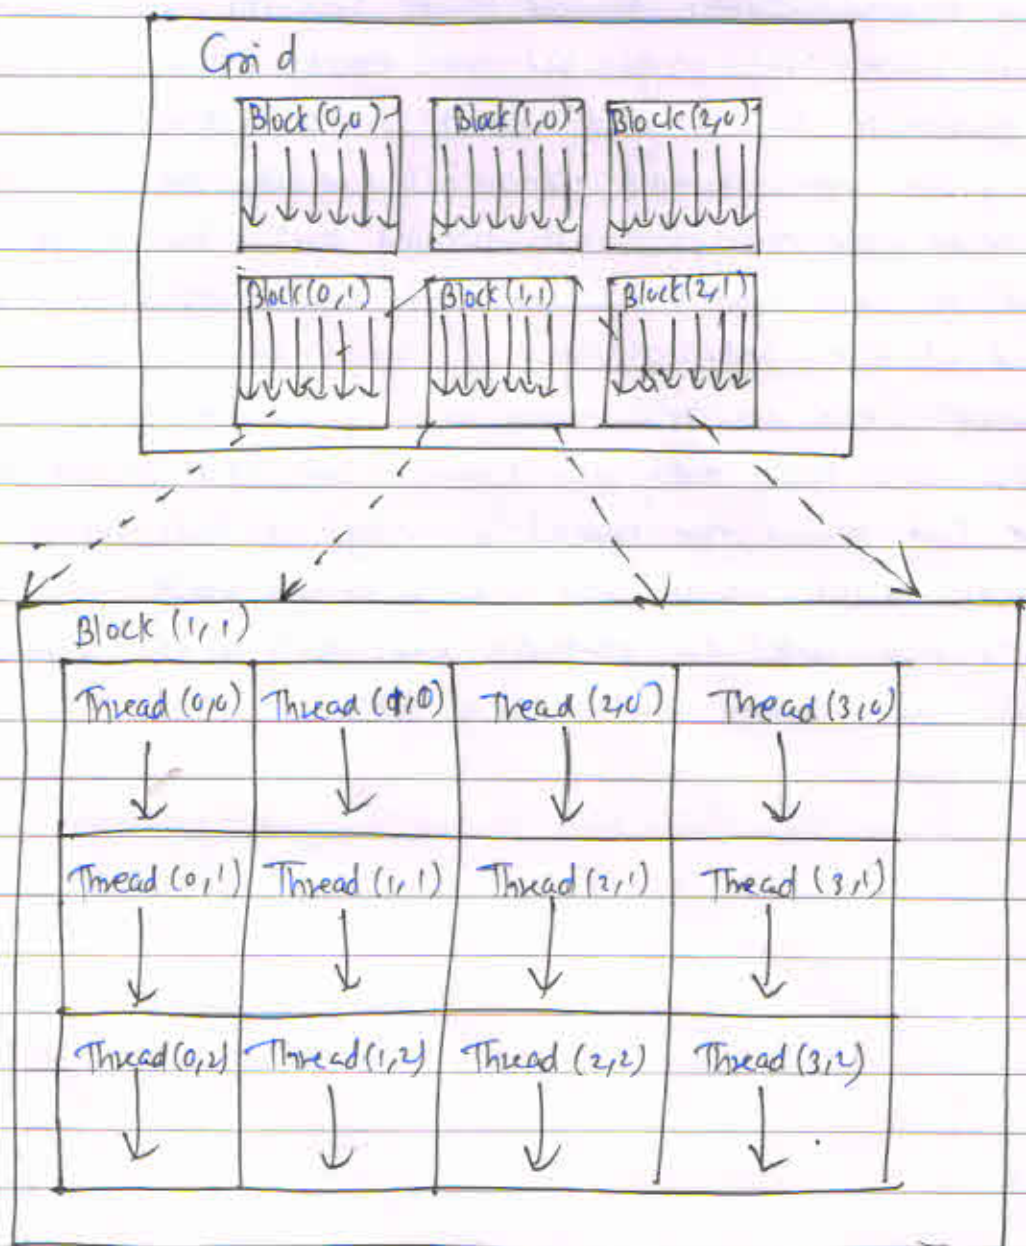 Grid
Block(0,0) Block(1,0) Block(2,0)
Block(0,1) Block(1,1) Block(2,1)
Block (1,1)
Thread (0,0) Thread (1,0) Thread (2,0) Thread (3,0)
Thread (0,1) Thread (1,1) Thread (2,1) Thread (3,1)
Thread (0,2) Thread (1,2) Thread (2,2) Thread (3,2)